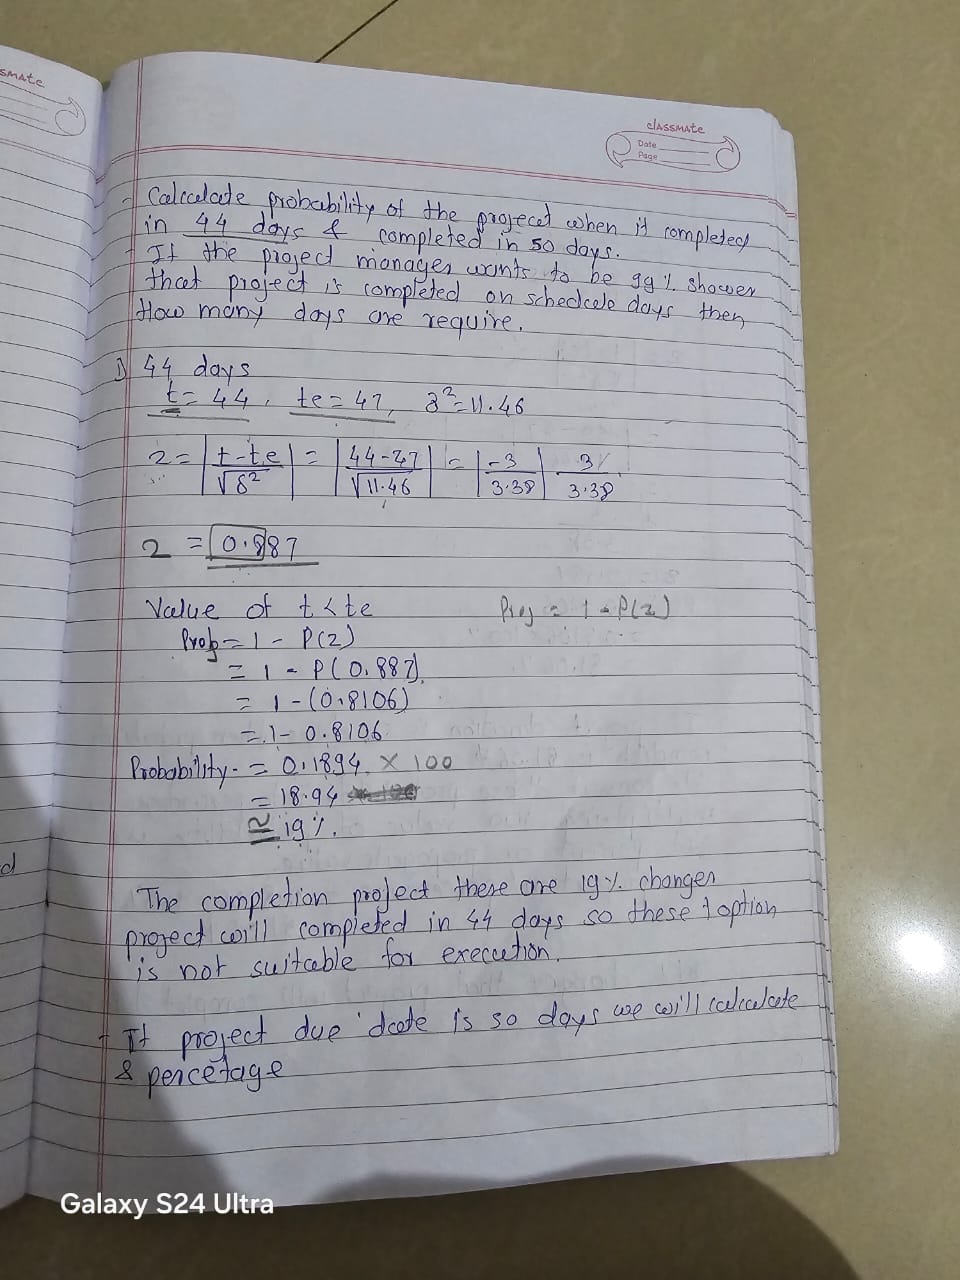 smate
classmate
Date
Page
- Calculate probability of the project when it completed
in 44 days & completed in 50 days.
- If the project manager wants to be 99% shower
that project is completed on schedule days then
How many days are require.
1) 44 days
t = 44, te = 47, 8² = 11.46
Z = |t-te / √8²| = |44-47 / √11.46| = |-3 / 3.38| 3 / 3.38
Z = 0.887
Value of t < te
Proj = 1 - P(z)
Prob = 1 - P(Z)
= 1 - P(0.887)
= 1 - (0.8106)
= 1 - 0.8106
Probability - = 0.1894 × 100
= 18.94
= 19%.
The completion project there are 19% changes
project will completed in 44 days so these 1 option
is not suitable for execution.
- If project due date is 50 days we will calculate
& percetage
d
Galaxy S24 Ultra